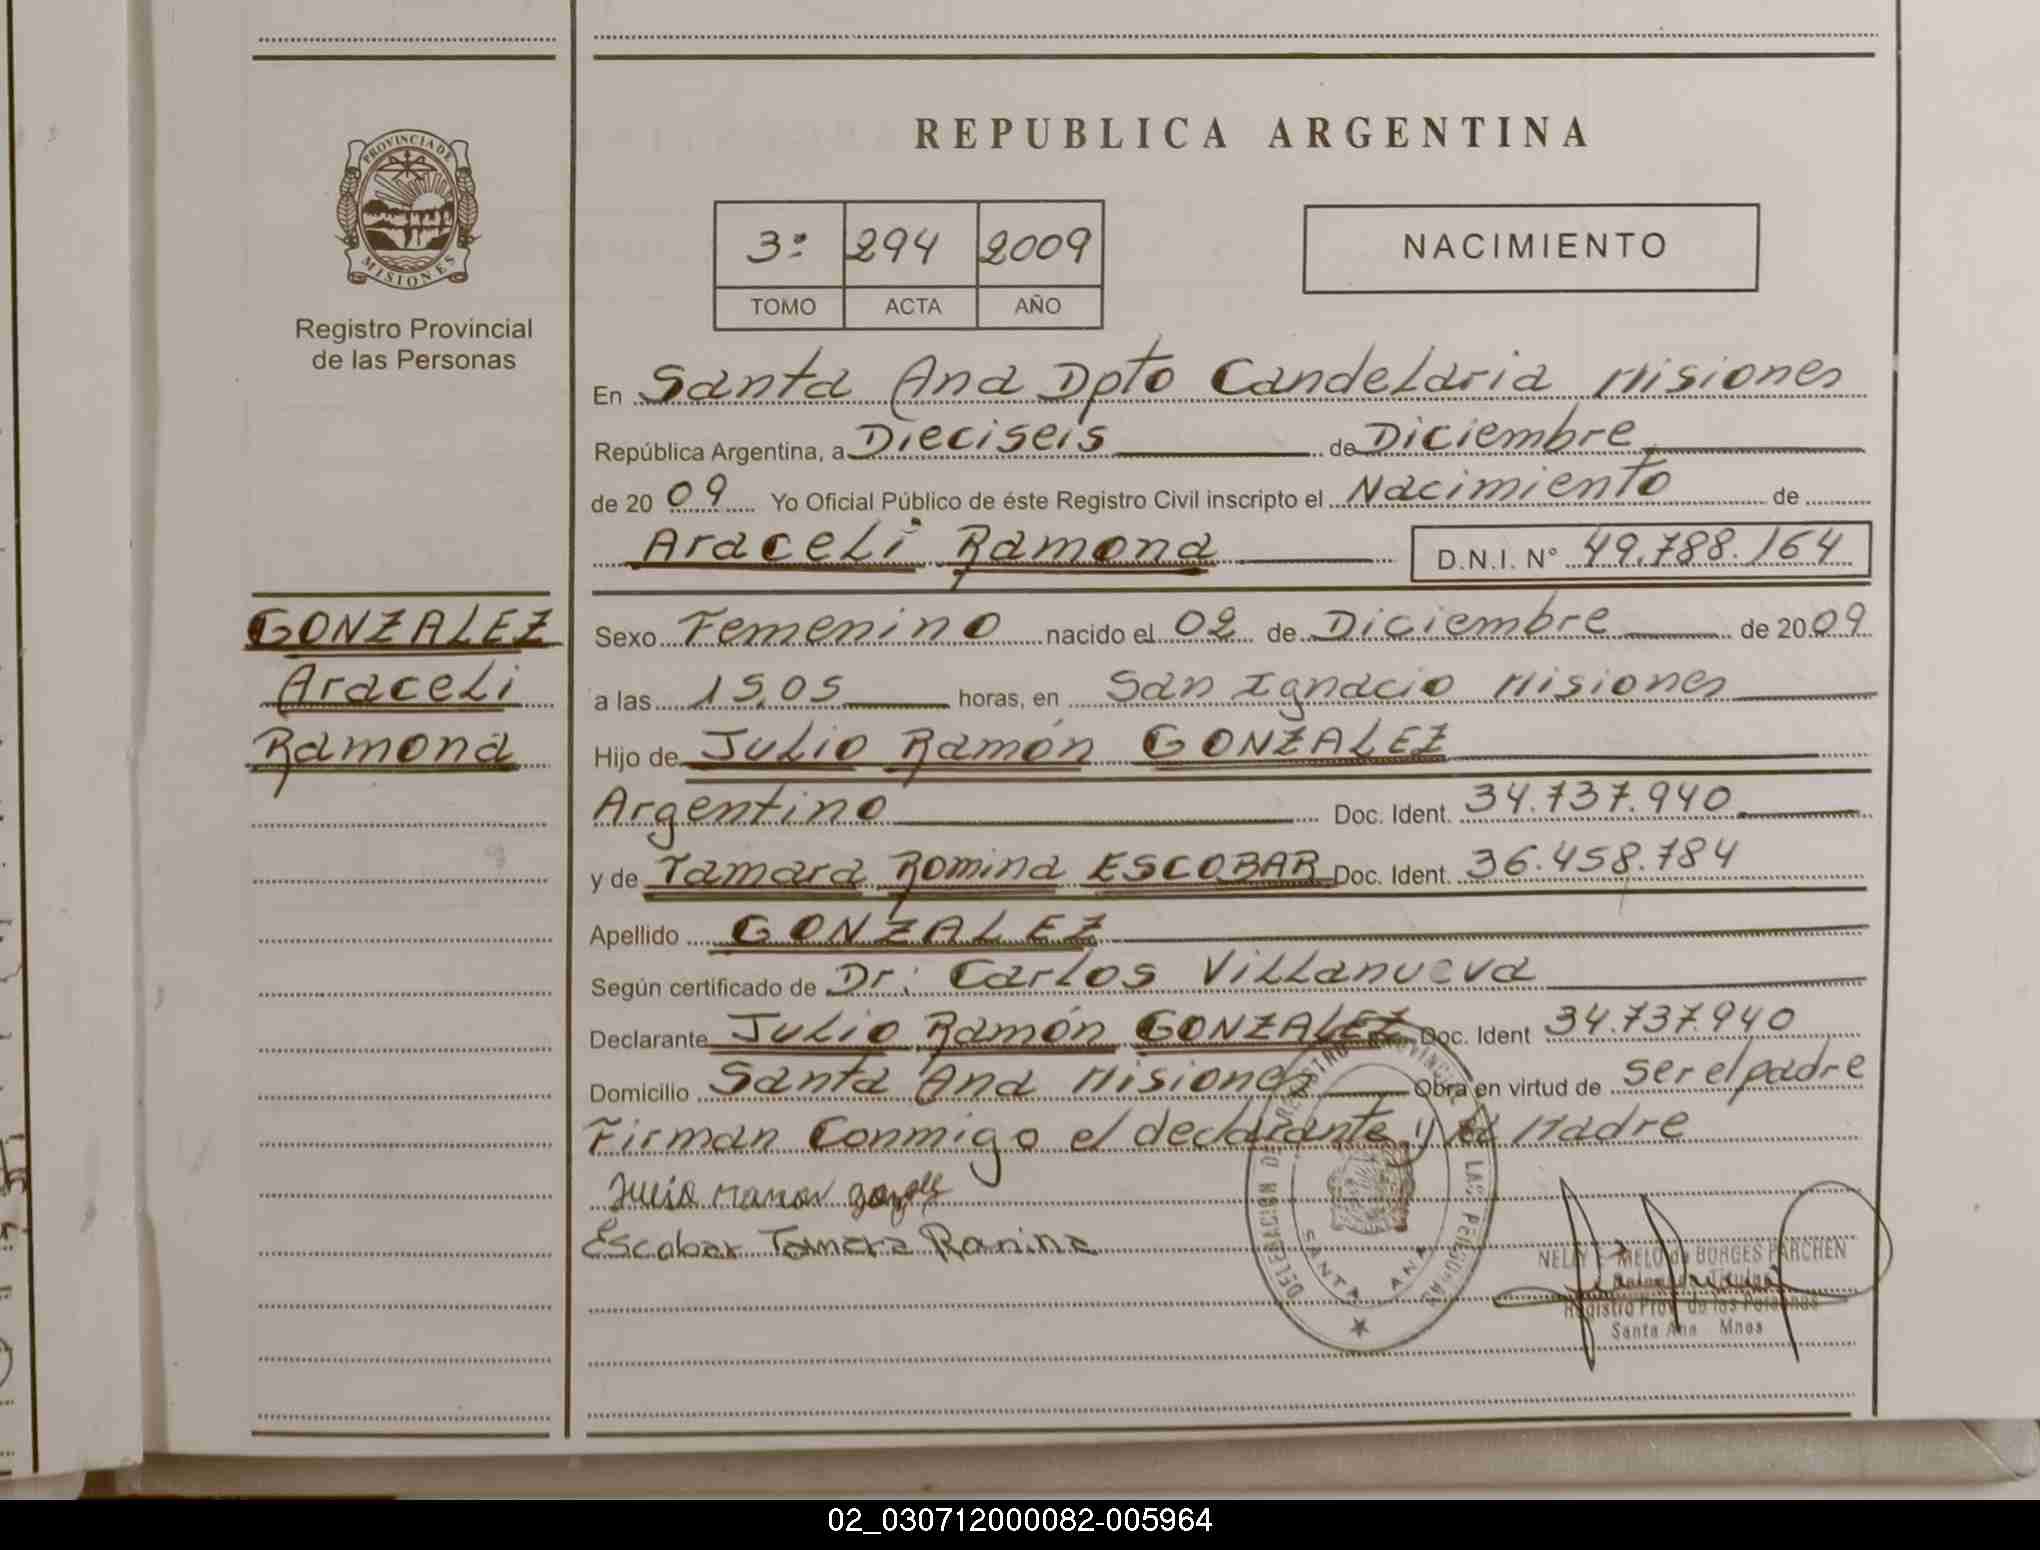 REPUBLICA ARGENTINA
PROVINCIA DE MISIONES
Registro Provincial
de las Personas
3º 294 2009
TOMO ACTA AÑO
NACIMIENTO
En Santa Ana Dpto Candelaria Misiones
República Argentina, a Dieciseis de Diciembre
de 20 09 Yo Oficial Público de éste Registro Civil inscripto el Nacimiento de
Araceli Ramona D.N.I. N° 49.788.164
GONZALEZ
Araceli
Ramona
Sexo Femenino nacido el 02 de Diciembre de 2009
a las 15,05 horas, en San Ignacio Misiones
Hijo de Julio Ramón GONZALEZ
Argentino Doc. Ident. 34.737.940
y de Tamara Romina ESCOBAR Doc. Ident. 36.458.784
Apellido GONZALEZ
Según certificado de Dr: Carlos Villanueva
Declarante Julio Ramón GONZALEZ Doc. Ident 34.737.940
Domicilio Santa Ana Misiones Obra en virtud de ser el padre
Firman Conmigo el declarante y Madre
Escobar Tamara Romina
DELEGACION DE REGISTRO PROVINCIAL LAS PERSONAS
SANTA ANA
NELLY MELO de BORGES PARCHEN
Registro Prov. de las Personas
Santa Ana Mnes
02_030712000082-005964